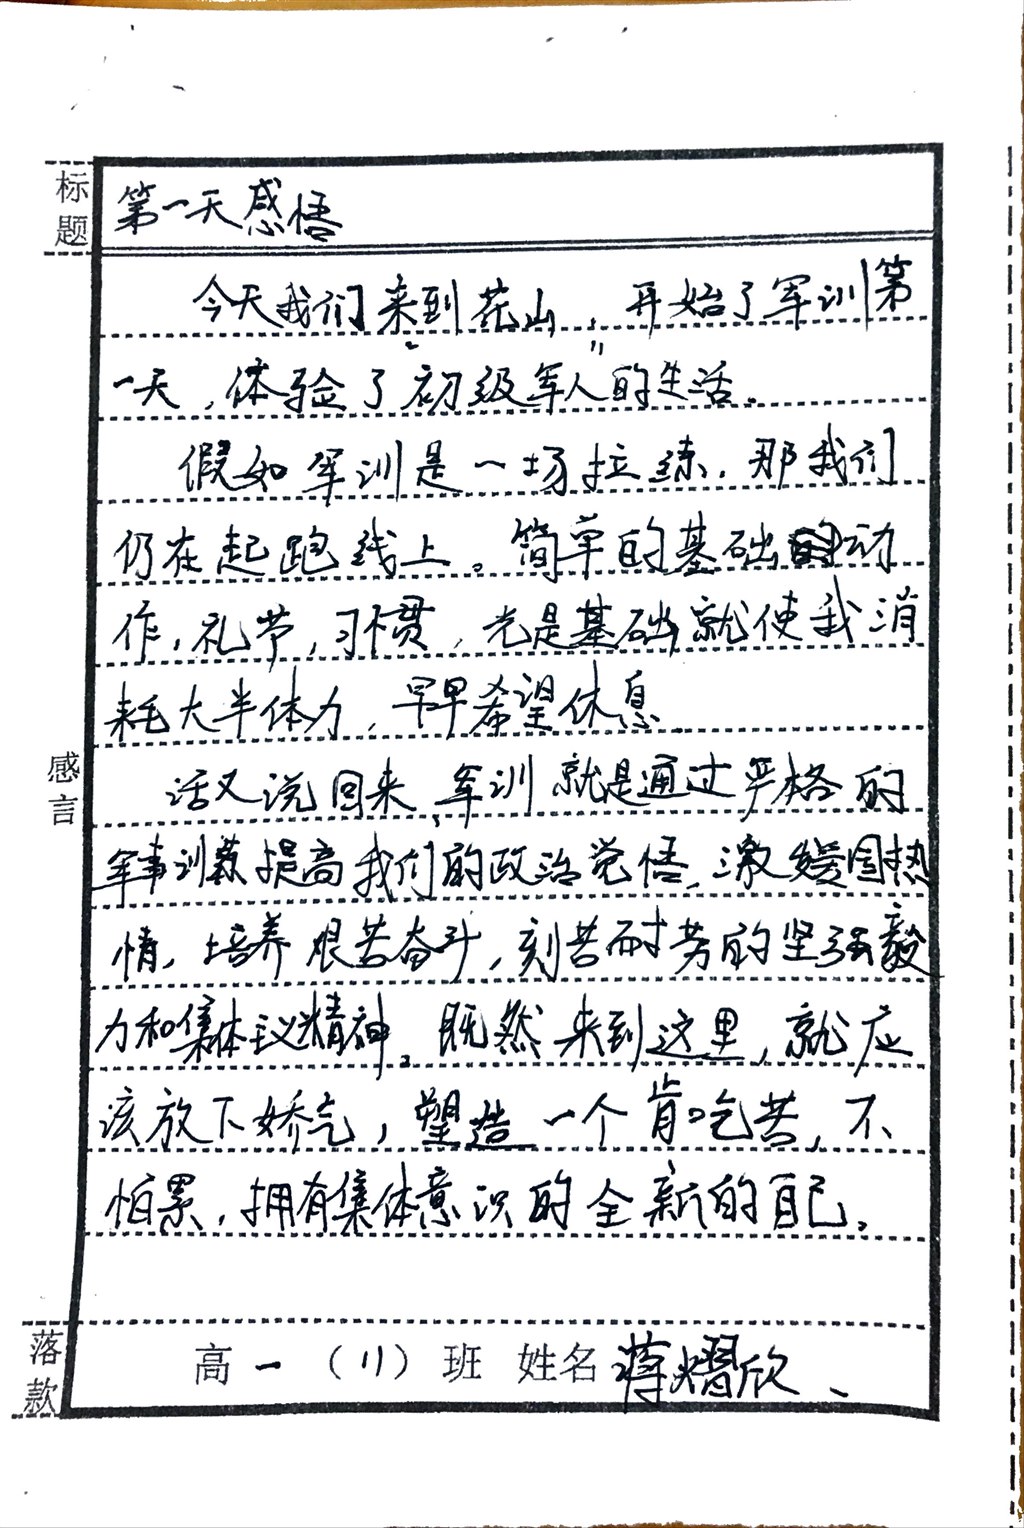 标题
第一天感悟
今天我们来到花山,开始了军训第
一天,体验了“初级军人”的生活。
假如军训是一场拉练,那我们
仍在起跑线上。简单的基础动
作,礼节,习惯,光是基础就使我消
耗大半体力,早早希望休息
话又说回来,军训就是通过严格的
军事训练提高我们的政治觉悟,激发爱国热
情,培养艰苦奋斗,刻苦耐劳的坚强毅
力和集体主义精神。既然来到这里,就应
该放下娇气,塑造一个肯吃苦,不
怕累,拥有集体意识的全新的自己。
感言
落款
高一(11)班 姓名 蒋熠欣